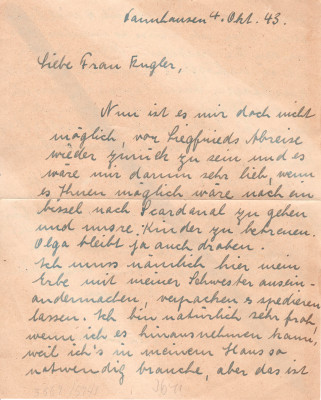 Tannhausen 4. Okt. 43.
Liebe Frau Engler,
Nun ist es mir doch nicht
möglich, vor Siegfrieds Abreise
wieder zurück zu sein und es
wäre mir darum sehr lieb, wenn
es Ihnen möglich wäre noch ein
bissel nach Scardanal zu gehen
und unsre Kinder zu betreuen.
Olga bleibt ja auch droben.
Ich muss nämlich hier mein
Erbe mit meiner Schwester ausein-
andermachen, verpacken & spedieren
lassen. Ich bin natürlich sehr froh,
wenn ich es hinausnehmen kann,
weil ich's in meinem Haus so
notwendig brauche, aber das ist